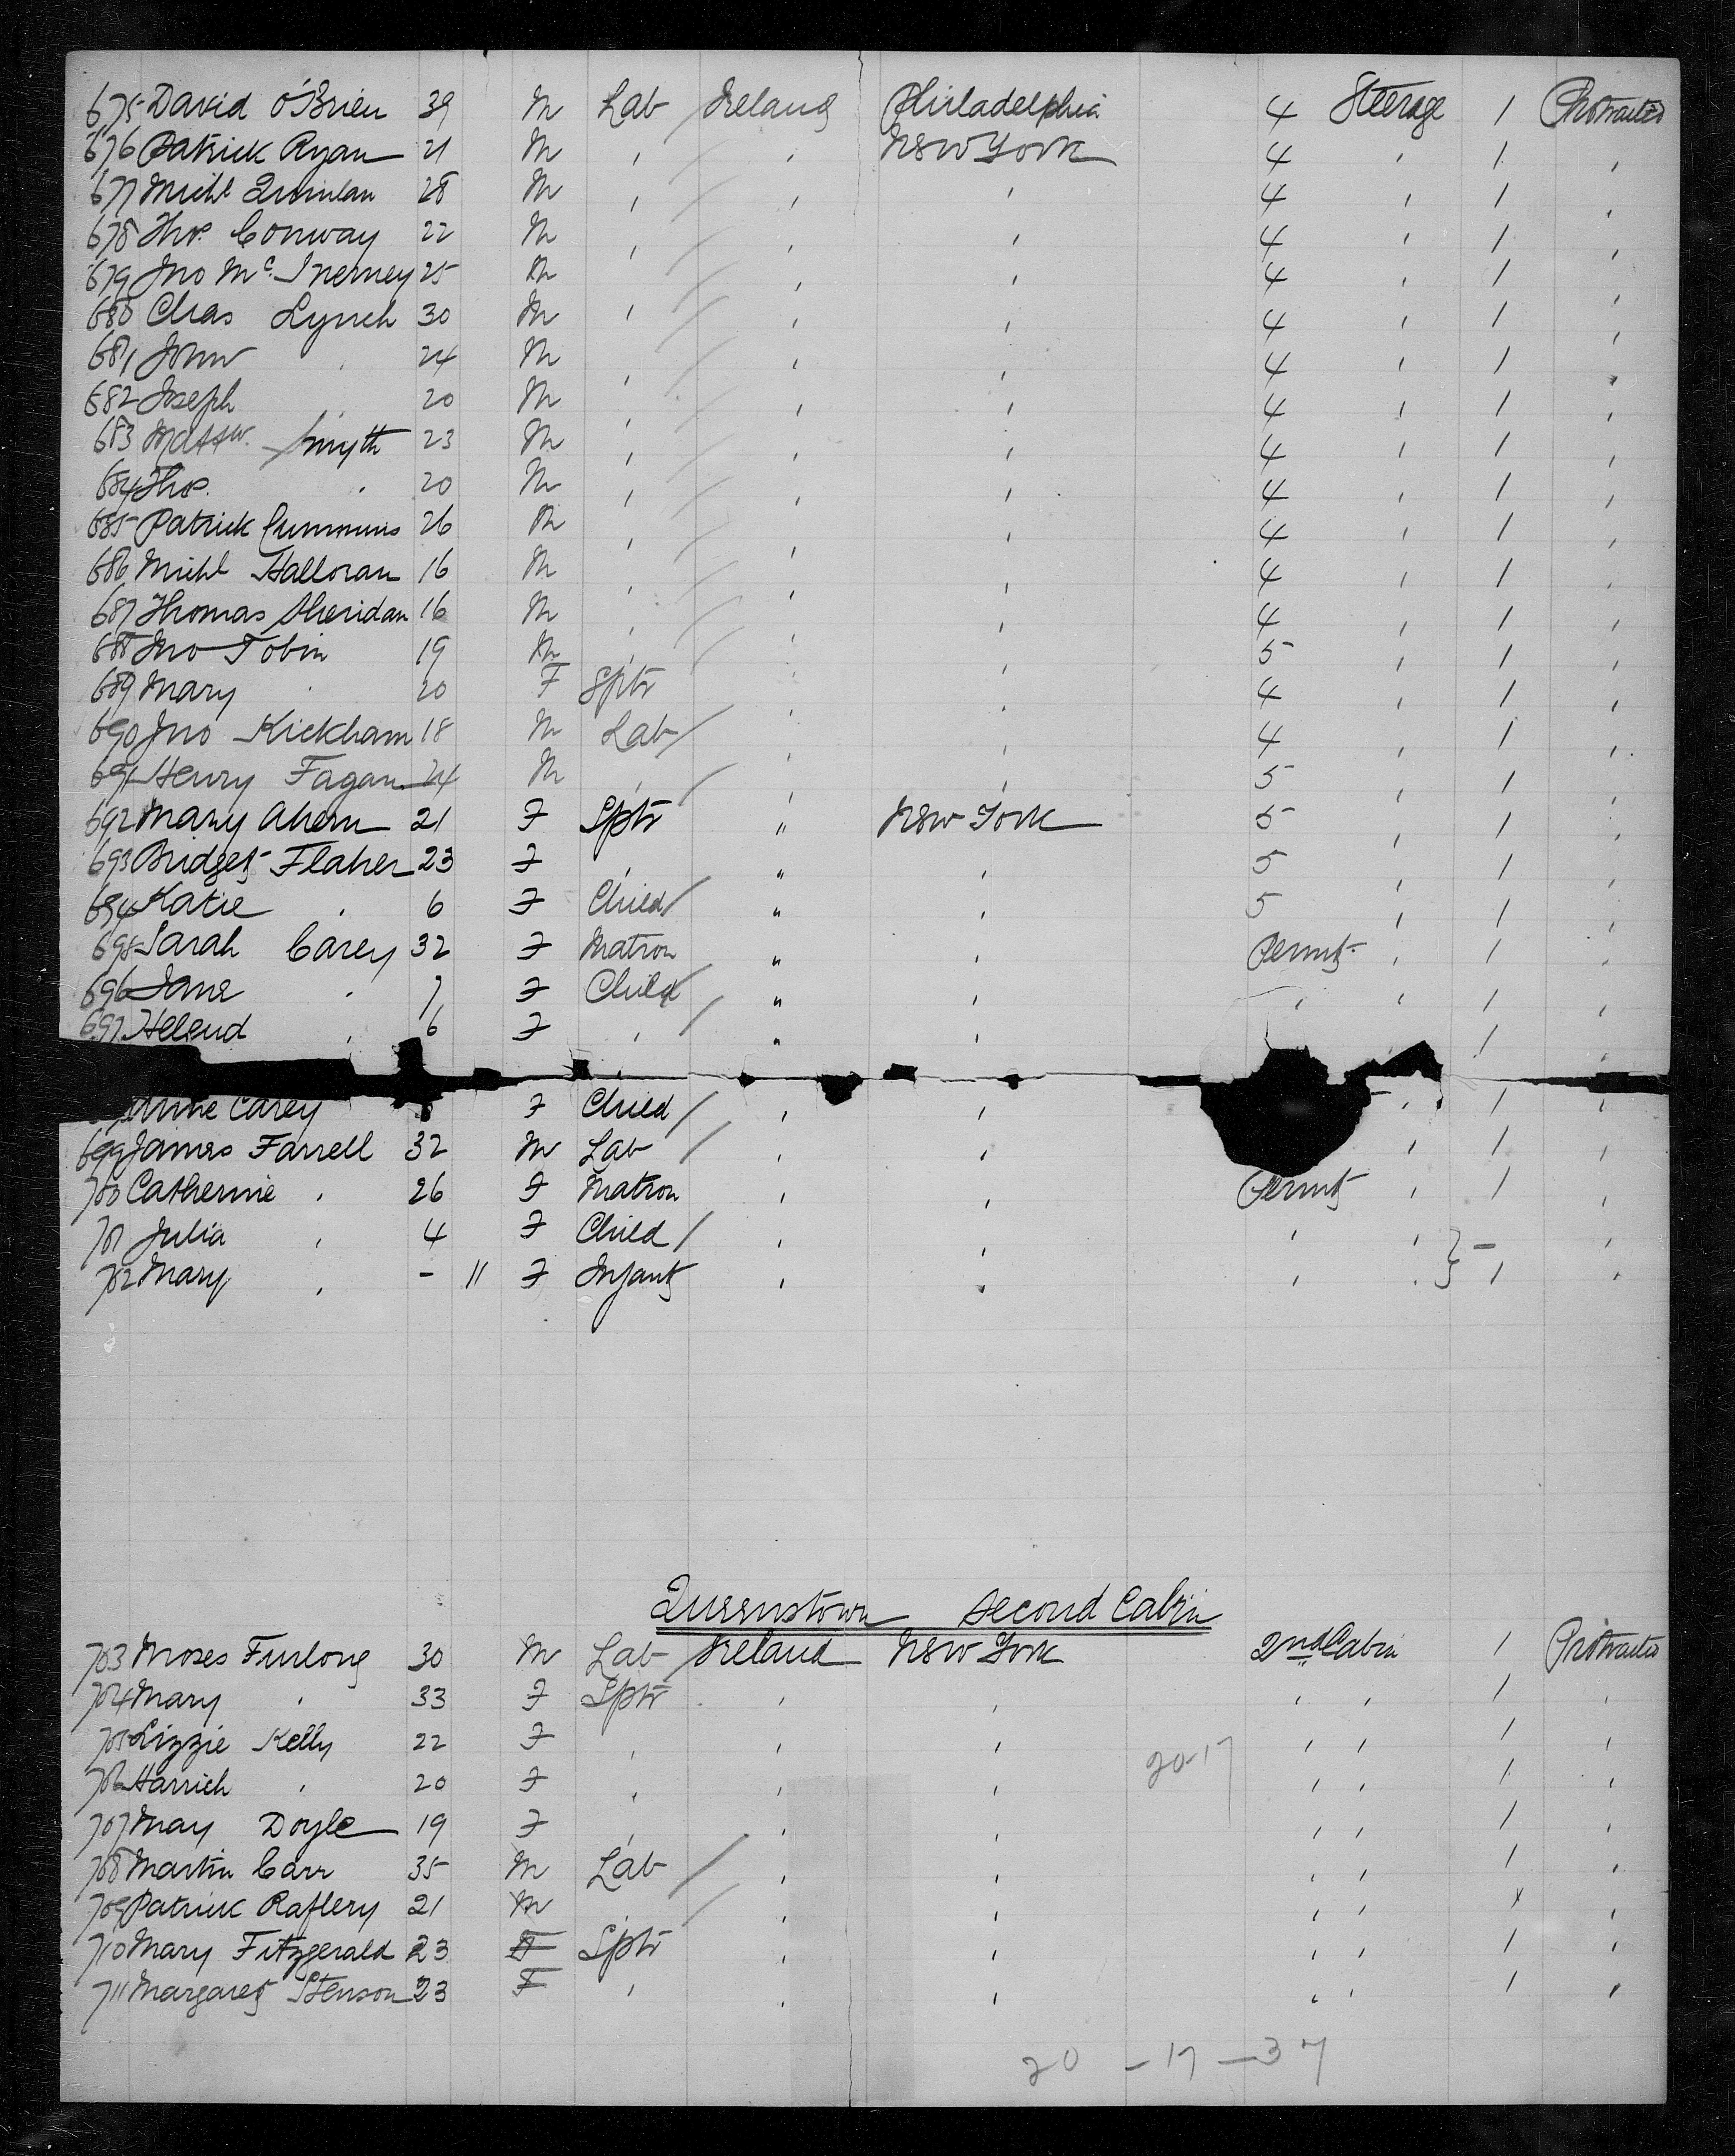 675 David O'Brien 39 M Lab Ireland Philadelphia 4 Steerage 1 Protracted
676 Patrick Ryan 21 M " " New York 4 " 1 "
677 Michl Quinlan 28 M " " " 4 " 1 "
678 Thos. Conway 22 M " " " 4 " 1 "
679 Jno McInerney 25 M " " 4 " 1 "
680 Chas Lynch 30 M " " " 4 " 1 "
681 John " 24 M " " " 4 " 1 "
682 Joseph " 20 M " " " 4 " 1 "
683 Mattw. Smyth 23 M " " " 4 " 1 "
684 Thos. " 20 M " " " 4 " 1 "
685 Patrick Cummins 26 M " " " 4 " 1 "
686 Michl Halloran 16 M " " " 4 " 1 "
687 Thomas Sheridan 16 M " " " 4 " 1 "
688 Jno Tobin 19 M " " " 5 " 1 "
689 Mary " 20 F Sptr " " 4 " 1 "
690 Jno Kickham 18 M Lab " " 4 " 1 "
691 Henry Fagan 24 M " " " 5 " 1 "
692 Mary Ahern 21 F Sptr " New York 5 " 1 "
693 Bridget Flaher 23 F " " " 5 " 1 "
694 Katie " 6 F Child " " 5 " 1 "
695 Sarah Carey 32 F Matron " " Permit " 1 "
696 Jane " 7 F Child " " " " 1 "
697 Helend " 6 F " " " 1 "
Carey F Child " " " 1 "
699 James Farrell 32 M Lab " " " 1 "
700 Catherine " 26 F Matron " " Permit " 1 "
701 Julia " 4 F Child " " " " } - "
702 Mary " - 11 F Infant " " " " 1 "
Queenstown Second Cabin
703 Moses Furlong 30 M Lab Ireland New York 2nd Cabin 1 Protracted
704 Mary " 33 F Sptr " " " " 1 "
705 Lizzie Kelly 22 F " " " " " 1 "
706 Harrich " 20 F " " " 20-17 " " 1 "
707 May Doyle 19 F " " " " " 1 "
708 Martin Carr 35 M Lab " " " " 1 "
709 Patrick Raftery 21 M " " " " " x "
710 Mary Fitzgerald 23 F Sptr " " " " 1 "
711 Margaret Stenson 23 F " " " " " 1 "
20 - 17 - 37